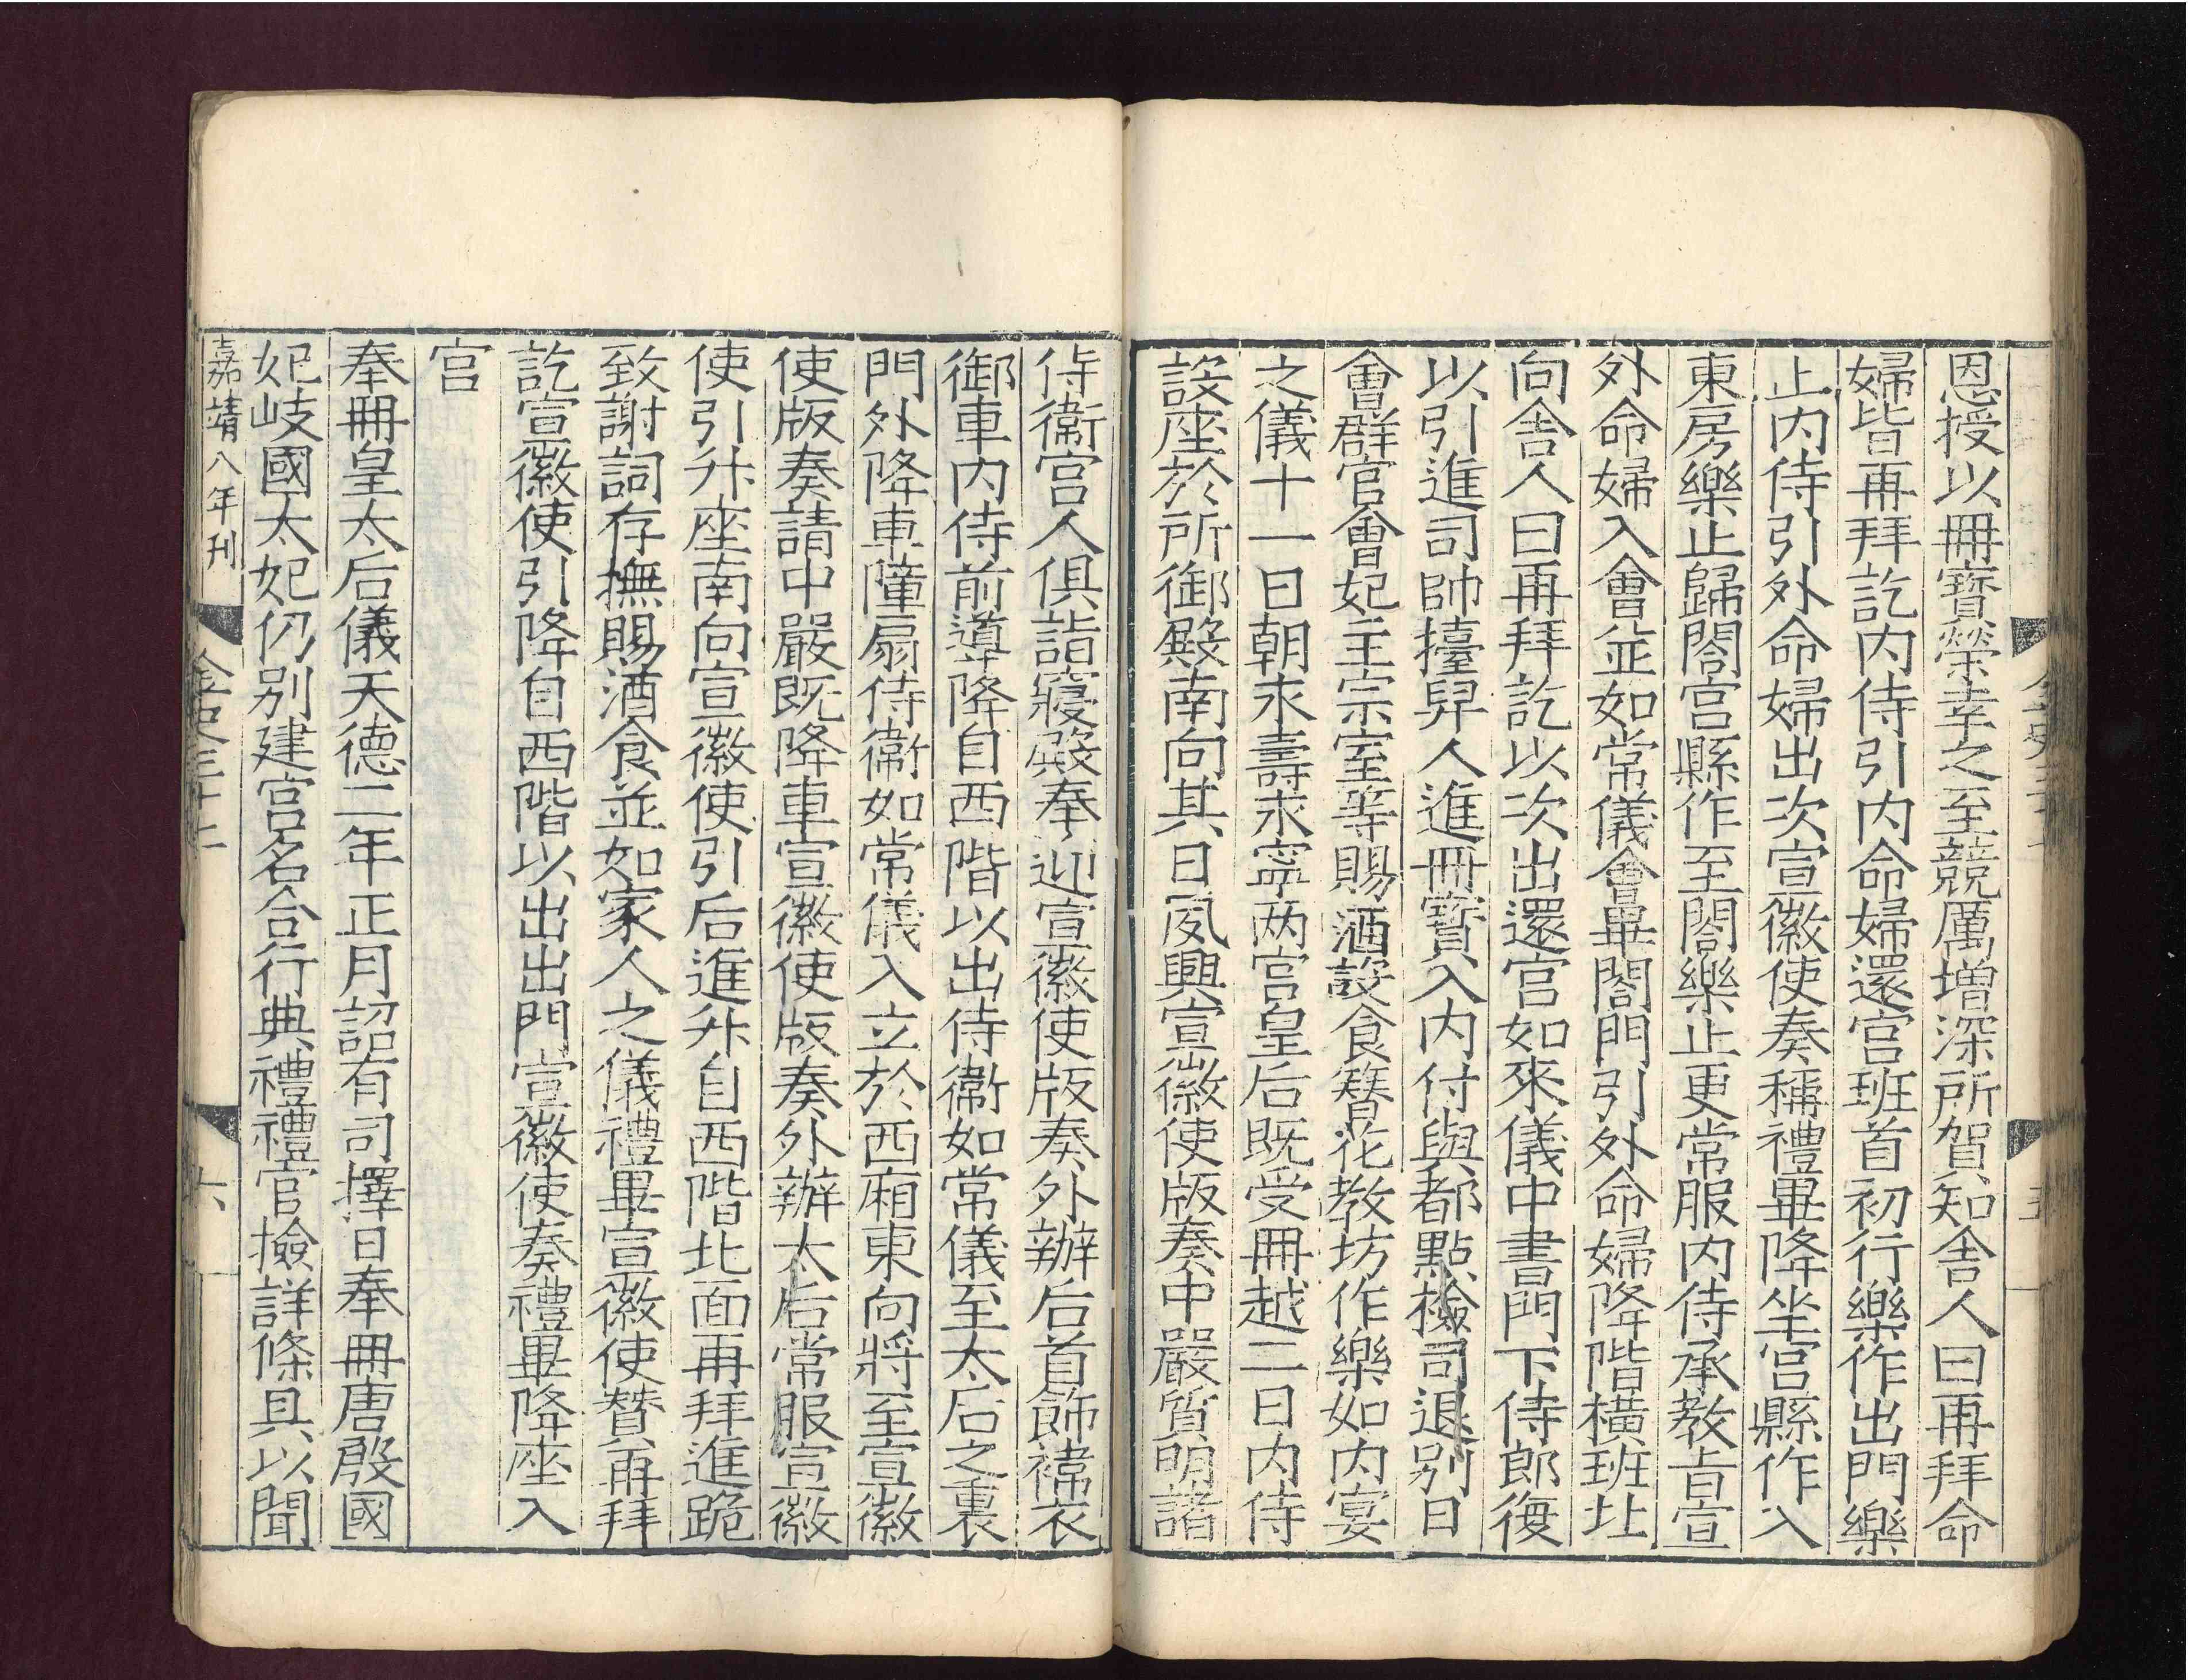 恩授以冊寶榮幸之至競厲增深所賀知舍人曰再拜命
婦皆再拜訖内侍引内命婦還宫班首初行樂作出門樂
止内侍引外命婦出次宣徽使奏稱禮畢降坐宫縣作入
東房樂止歸閤宫縣作至閤樂止更常服内侍承教旨宣
外命婦入會並如常儀會畢閤門引外命婦降階横班北
向舍人曰再拜訖以次出還宫如來儀中書門下侍郎復
以引進司帥擡舁人進冊寶入内付與都點檢司退别日
會群官會妃主宗室等賜酒設食簪花教坊作樂如内宴
之儀十一日朝永壽永寧两宫皇后既受冊越二日内侍
設座於所御殿南向其日夙興宣徽使版奏中嚴質明諸
侍衞宫人俱詣寢殿奉迎宣徽使版奏外辦后首飾褘衣
御車内侍前導降自西階以出侍衞如常儀至太后之裏
門外降車障扇侍衞如常儀入立於西廂東向將至宣徽
使版奏請中嚴既降車宣徽使版奏外辦太后常服宣徽
使引升座南向宣徽使引后進升自西階北面再拜進跪
致謝詞存撫賜酒食並如家人之儀禮畢宣徽使贊再拜
訖宣徽使引降自西階以出出門宣徽使奏禮畢降座入
宫
奉冊皇太后儀天德二年正月詔有司擇日奉冊唐殷國
妃岐國太妃仍别建宫名合行典禮禮官檢詳條具以聞
嘉靖八年刊
金史三十七
六